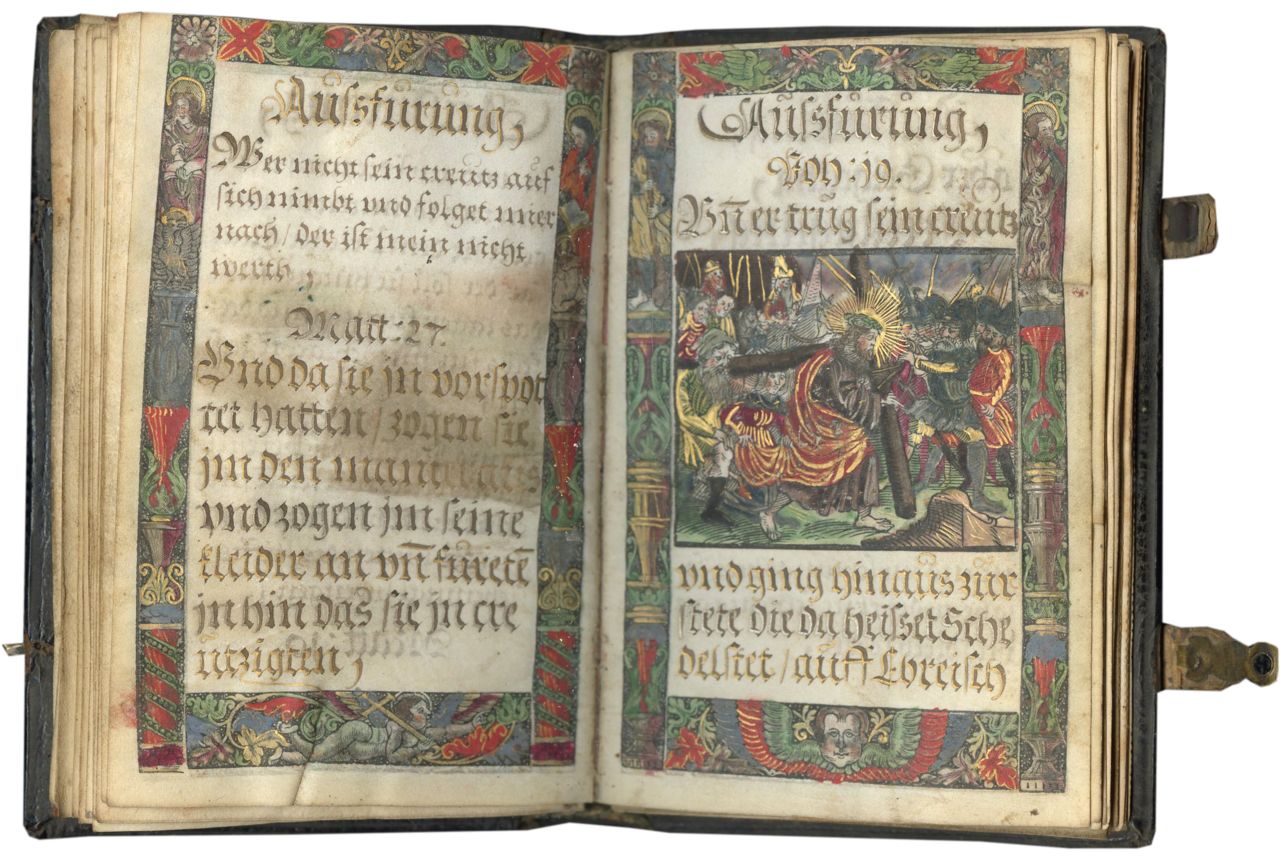 Aůssfůrůng,
Wer nicht sein creůtz aůf
sich nimbt vnd folget mier
nach / der ist mein nicht
werth,
Matt: 27.
Vnd da sie jn vorspot
tet hatten / zogen sie
jm den mantel aůs
vnd zogen jm seine
kleider an vn̄ fůretē
jn hin das sie jn cre
ůtzigten,
Aůssfůrůng,
Joh: 19.
Vn̄ er trůg sein creůtz
vnd ging hinaůs zůr
stete die da heisset Sche
delstet / aůff Ebreisch